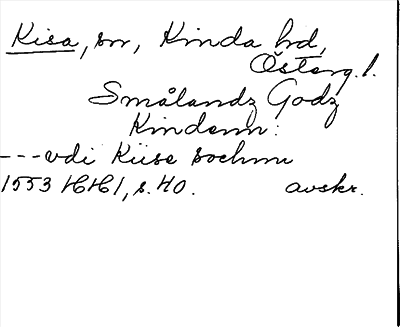 Kisa, sn, Kinda hd,
Österg. l.
Smålandz Godz
Kindenn:
---vdi Kiise sochnn
1553 HH1, s. 40. avskr.